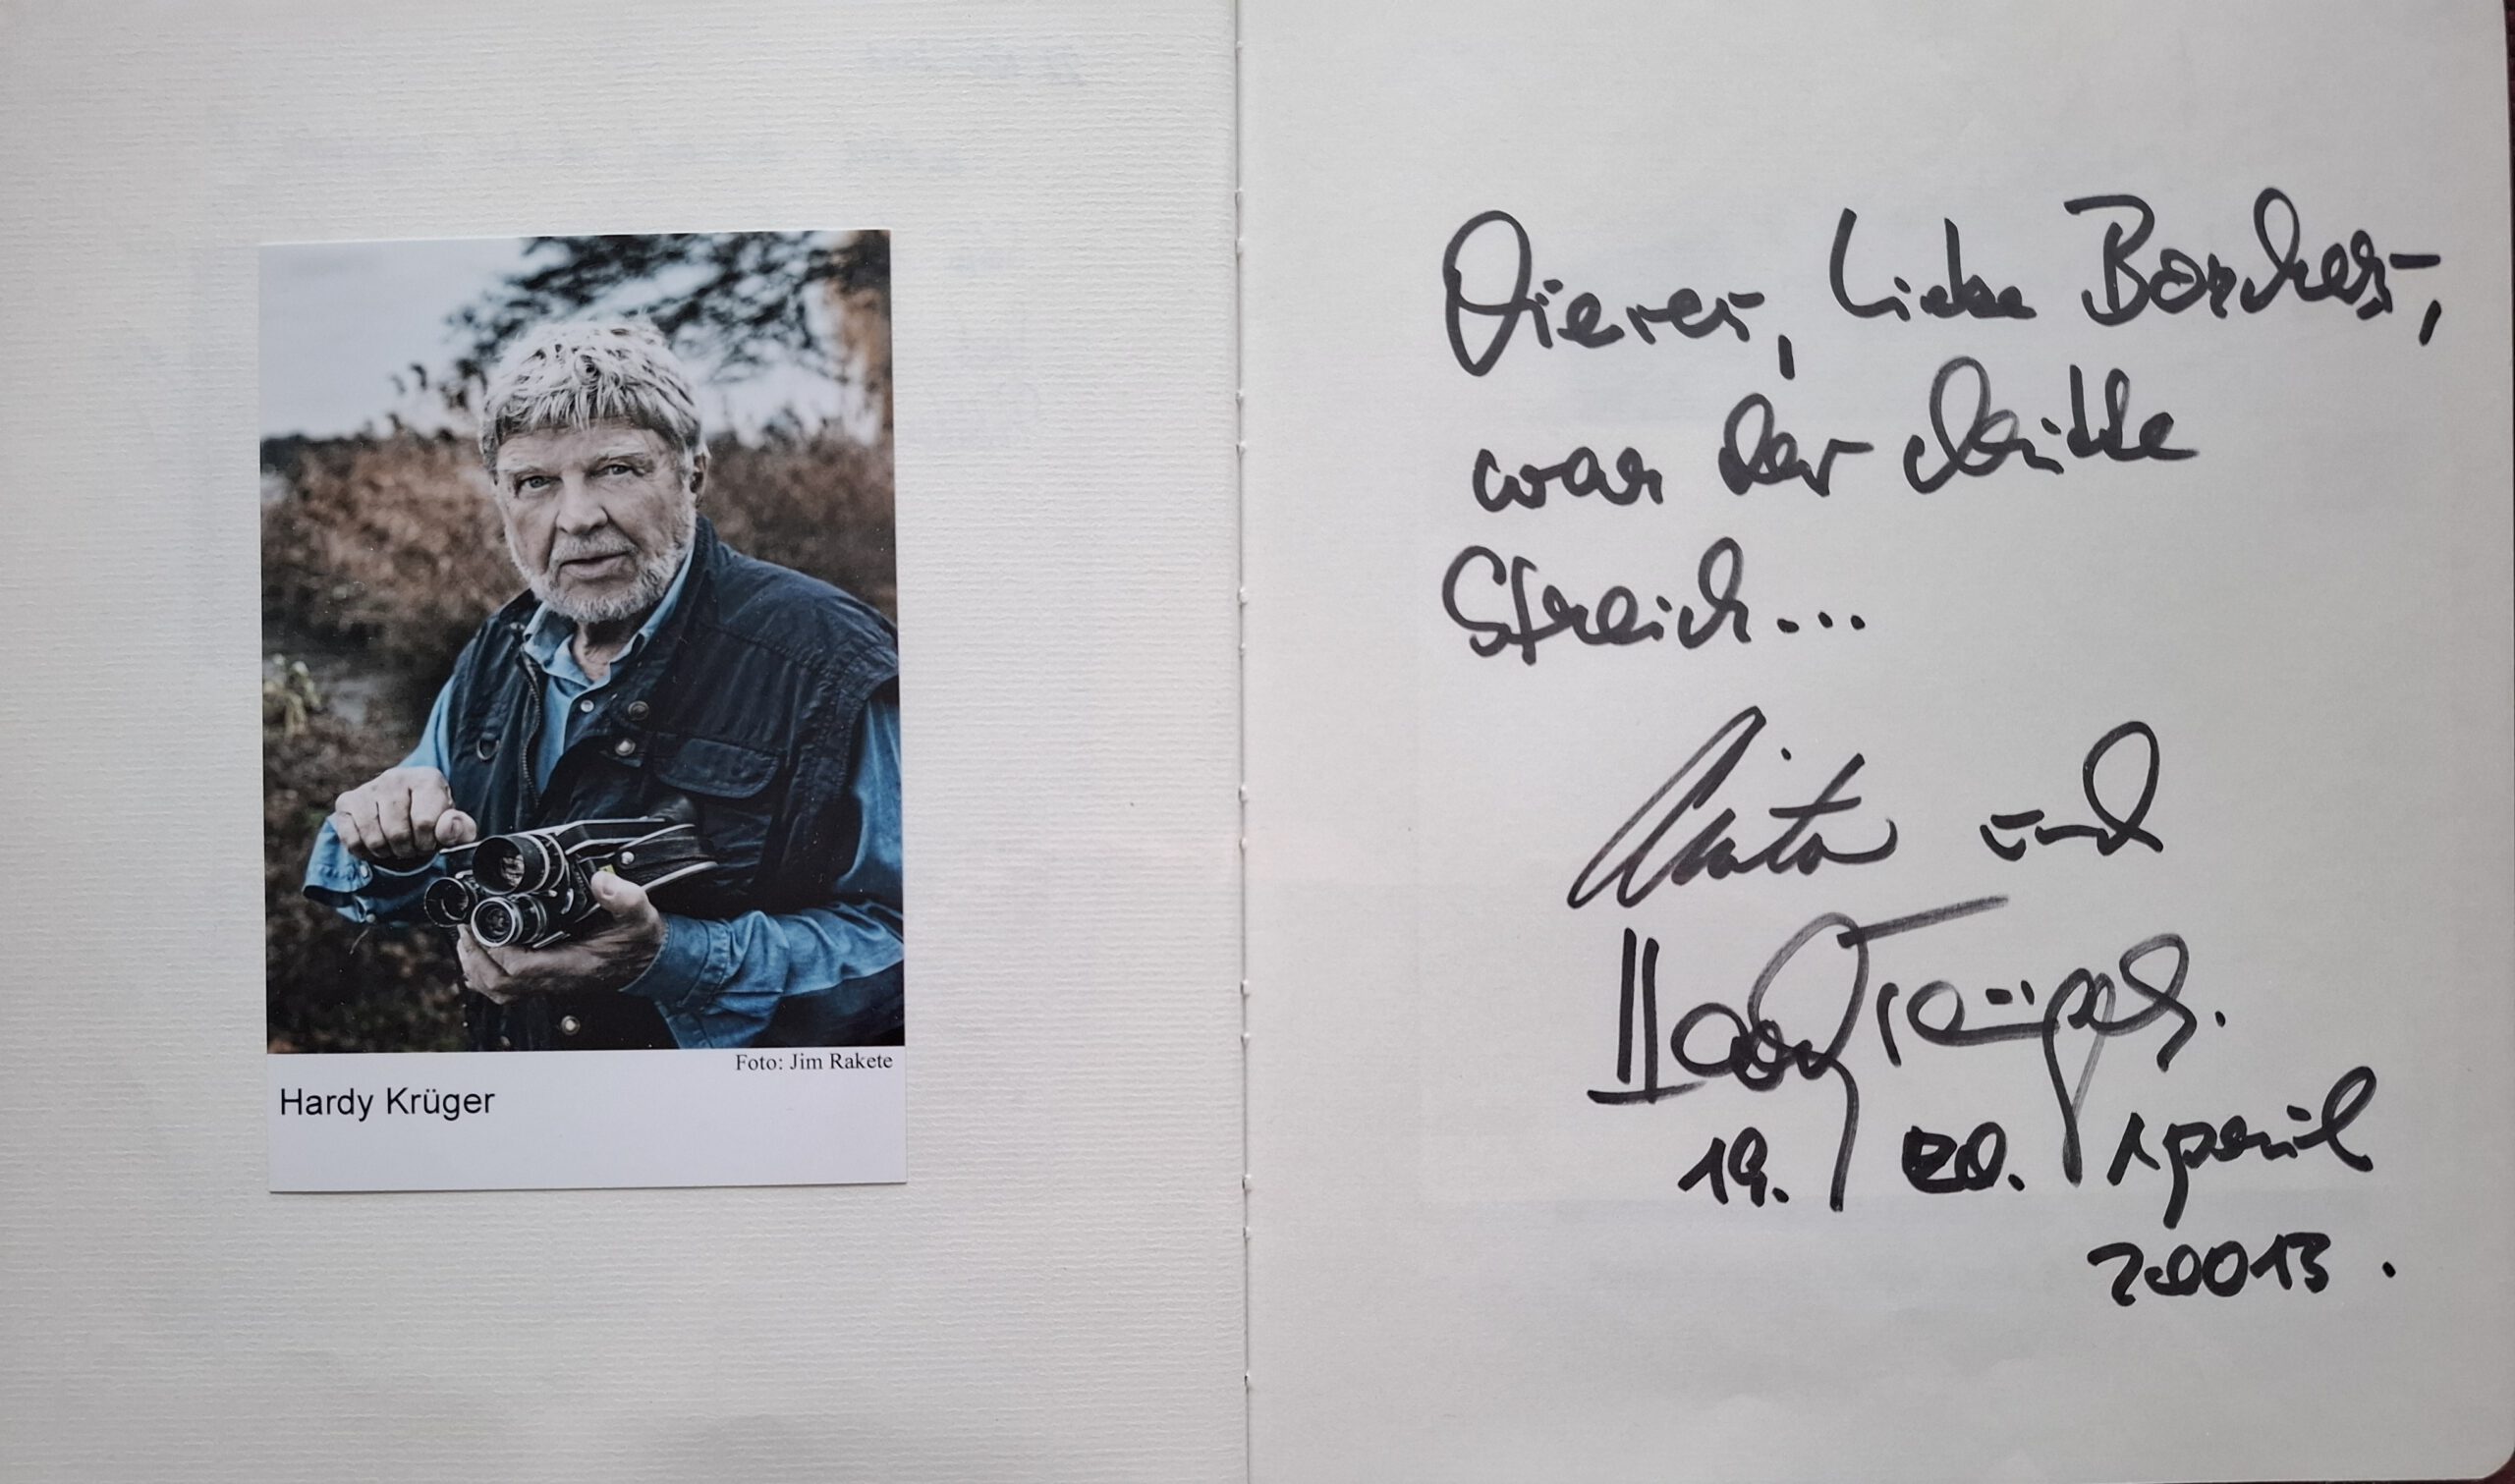 Foto: Jim Rakete
Hardy Krüger
Dieser, liebe Borchers,
war der dritte
Streich...
Anita und
Hardy Krüger.
19. 20. April
20013.